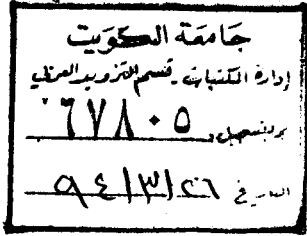 جامعة الكويت
إدارة المكتبات - قسم التزويد العربي
رقم التسجيل ٦٧٨٠٥
التاريخ ٩٤/٣/٢٦